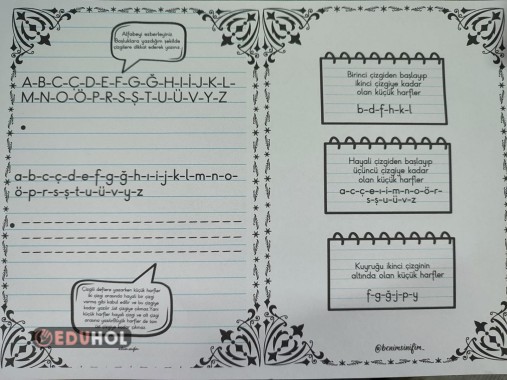 Alfabeyi ezberleyiniz.
Boşluklara yazdığım şekilde
çizgilere dikkat ederek yazınız.
A-B-C-Ç-D-E-F-G-Ğ-H-I-İ-J-K-L-
M-N-O-Ö-P-R-S-Ş-T-U-Ü-V-Y-Z
a-b-c-ç-d-e-f-g-ğ-h-ı-i-j-k-l-m-n-o-
ö-p-r-s-ş-t-u-ü-v-y-z
Çizgili deftere yazarken küçük harfler
iki çizgi arasında hayali bir çizgi
varmış gibi kabul edilir ve bu çizgiye
kadar yazılır. Üst çizgiye çıkmaz.
EDUHOL
Birinci çizgiden başlayıp
ikinci çizgiye kadar
olan küçük harfler
b-d-f-h-k-l
Hayali çizgiden başlayıp
üçüncü çizgiye kadar
olan küçük harfler
a-c-ç-e-ı-i-m-n-o-ö-r-
s-ş-u-ü-v-z
Kuyruğu ikinci çizginin
altında olan küçük harfler
f-g-ğ-j-p-y
@benimsinifim_